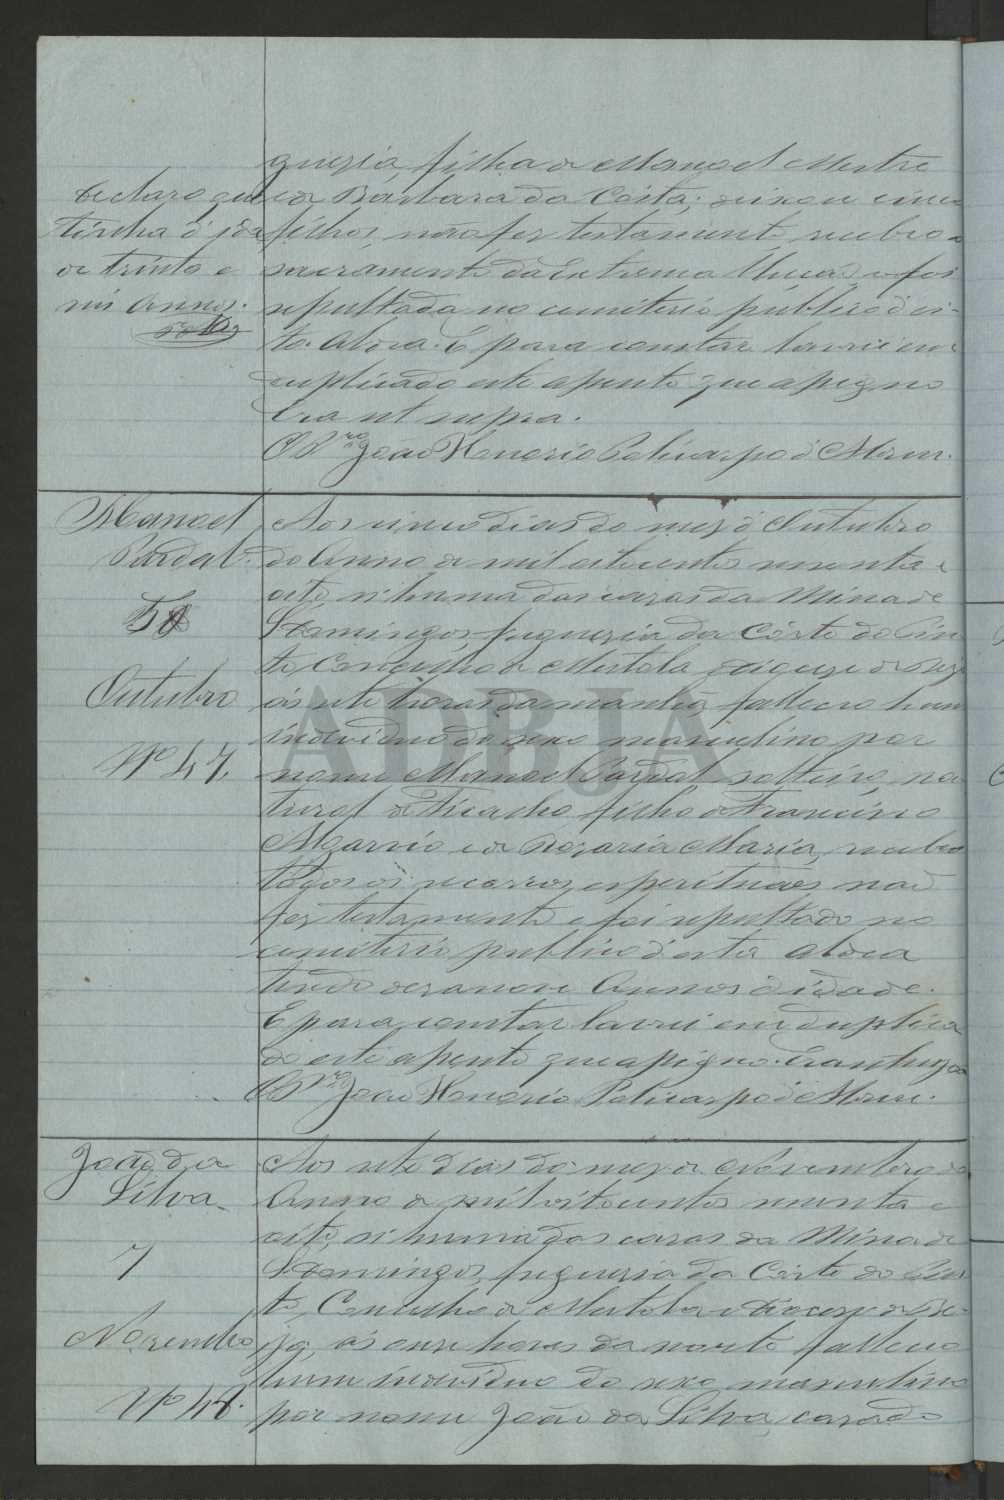 guezia, filha de Manoel Mestre
e de Barbara da Costa; deixou cinco
filhos, não fez testamento, recebeo o
sacramento da Extrema Unção e foi
sepultada no cemiterio publico d'es-
ta Aldea. E para constar lavrei em
duplicado este assento que assigno
Era ut supra.
O Pro João Honorio Policarpo d'
Declaro que
tinha d'ida
de trinta e
seis Annos.
Manoel
Pardal
5
Outubro
Nº 47.
Aos cinco dias do mez d'Outubro
do Anno de mil oitocentos sesenta e
oito, n'huma das cazas da Mina de
S. Domingos, freguezia da Côrte do Pin
to, Concelho de Mertola, Diocese de Beja
ás sete horas da manhã falleceo hum
individuo do sexo masculino por
nome Manoel Pardal solteiro, na
tural de filho de Francisco
e de Maria, recebeo
todos os socorros espirituaes não
fez testamento e foi sepultado no
cemiterio publico d'esta Aldea
tendo dezanove Annos d'idade.
E para constar lavrei em duplica
do este assento que assigno. Era ut supra
O Pro João Honorio Policarpo d'
João da
Silva
7
Novembro
Nº 48.
Aos sete dias do mez de Novembro do
Anno de mil oitocentos sesenta e
oito, n'huma das cazas da Mina de
S. Domingos, freguezia da Côrte do Pin
to, Concelho de Mertola e Diocese de Be-
ja, ás onze horas da noute falleceo
hum individuo do sexo masculino
por nome João da Silva, cazado
ADBJA